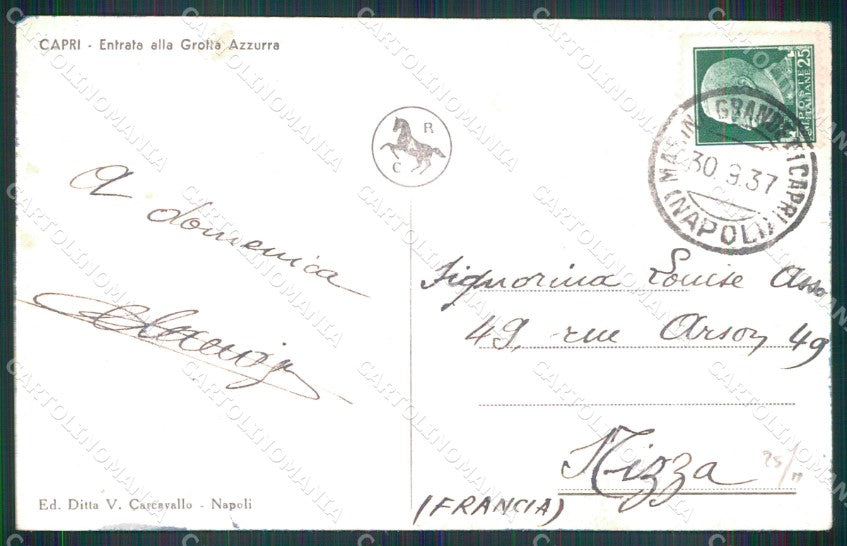 CAPRI - Entrata alla Grotta Azzurra
R
C
POSTE ITALIANE
25
MARINA GRANDE (CAPRI)
30.9.37
(NAPOLI)
A domenica
Signorina Louise Asso
49, rue Arson, 49
Nizza
(FRANCIA)
Ed. Ditta V. Carcavallo - Napoli
CARTOLINOMANIA